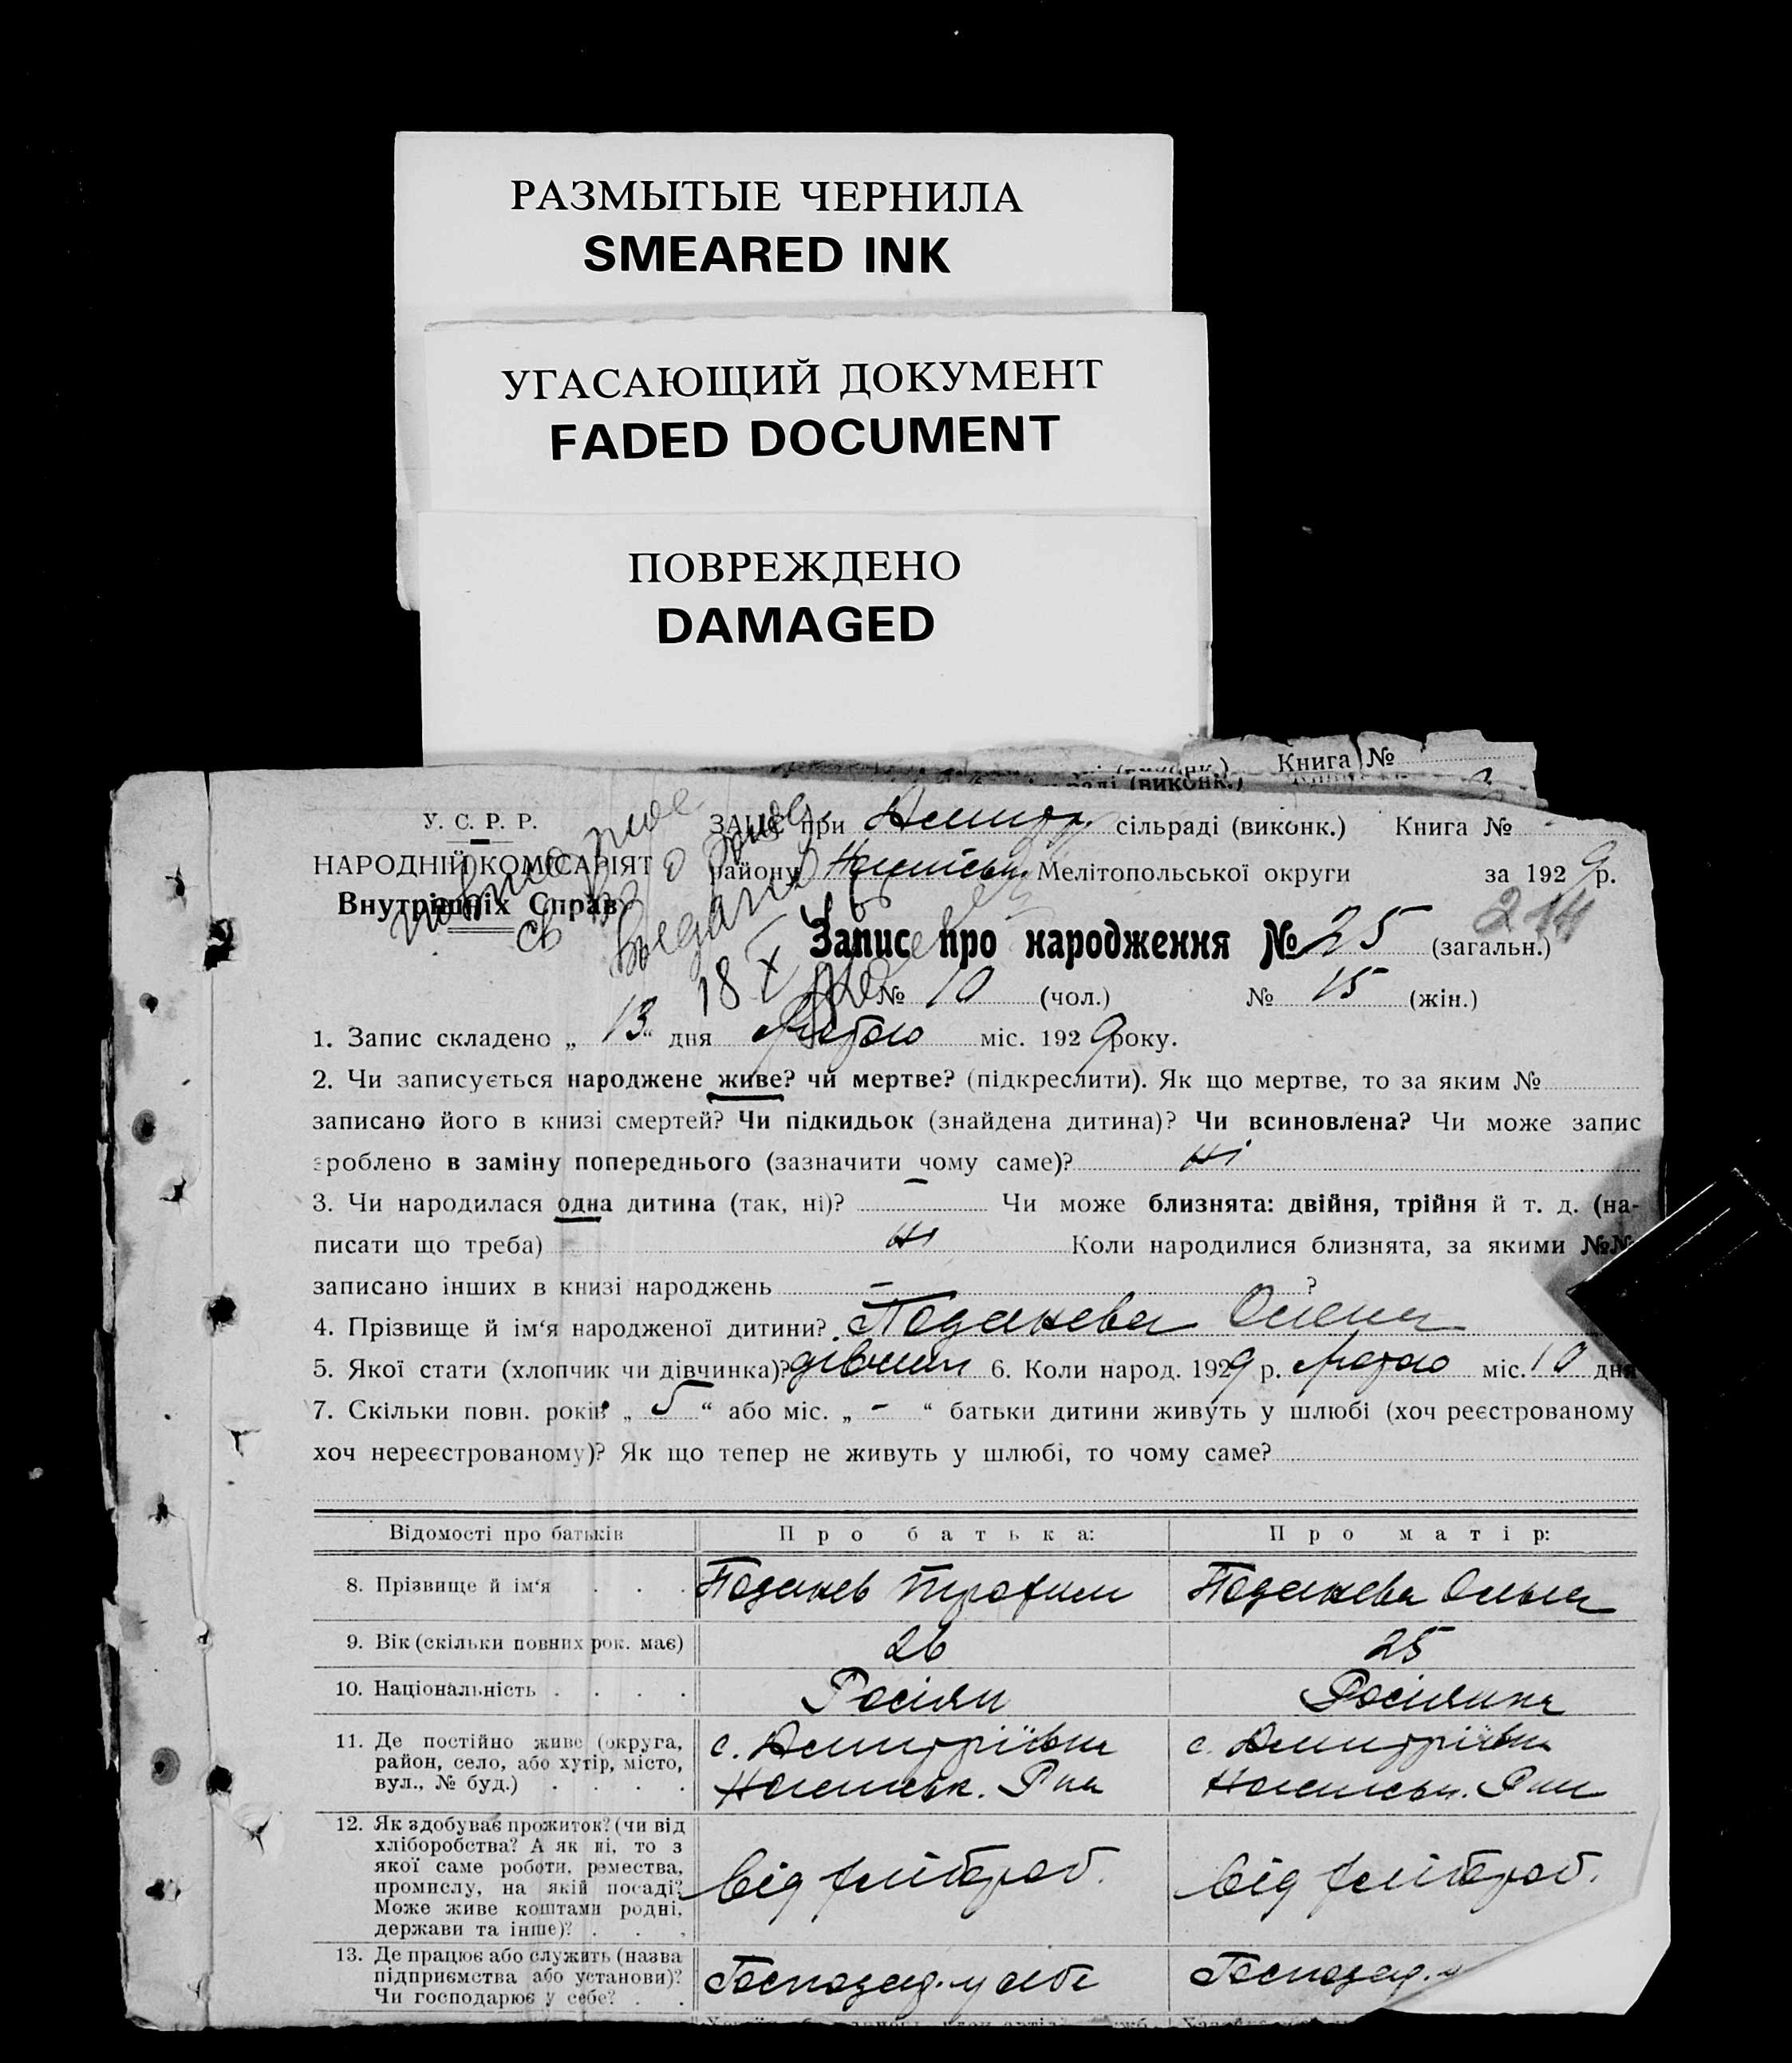 РАЗМЫТЫЕ ЧЕРНИЛА
SMEARED INK
УГАСАЮЩИЙ ДОКУМЕНТ
FADED DOCUMENT
ПОВРЕЖДЕНО
DAMAGED
(виконк.) Книга №
раді (виконк.)
У. С. Р. Р.
НАРОДНІЙ КОМІСАРІЯТ
Внутрішніх Справ
ЗАГС при Дмитр. сільраді (виконк.) Книга №
району Мелітопольської округи за 1929 р.
214
18 X
Запис про народження № 25 (загальн.)
№ 10 (чол.) № 15 (жін.)
1. Запис складено „ 13 “ дня лютого міс. 1929 року.
2. Чи записується народжене живе? чи мертве? (підкреслити). Як що мертве, то за яким №
записано його в книзі смертей? Чи підкидьок (знайдена дитина)? Чи всиновлена? Чи може запис
зроблено в заміну попереднього (зазначити чому саме)? ні
3. Чи народилася одна дитина (так, ні)? — Чи може близнята: двійня, трійня й т. д. (на-
писати що треба) ні Коли народилися близнята, за якими №№
записано інших в книзі народжень — ?
4. Прізвище й ім‘я народженої дитини? Олена
5. Якої стати (хлопчик чи дівчинка)? дівчина 6. Коли народ. 1929 р. лютого міс. 10 дня
7. Скільки повн. років „ 5 “ або міс. „ - “ батьки дитини живуть у шлюбі (хоч реєстрованому
хоч нереєстрованому)? Як що тепер не живуть у шлюбі, то чому саме?
Відомості про батьків Про батька: Про матір:
8. Прізвище й ім‘я . . . Трофим Ольга
9. Вік (скільки повних рок. має) 26 25
10. Національність . . . . Росіян Росіянка
11. Де постійно живе (округа,
район, село, або хутір, місто,
вул., № буд.) . . . .
с. Дмитрівка
Р на
с. Дмитрівка
Р на
12. Як здобуває прожиток? (чи від
хліборобства? А як ні, то з
якої саме роботи, ремества,
промислу, на якій посаді?
Може живе коштами родні,
держави та інше)? . . .
Від хлібороб.
Від хлібороб.
13. Де працює або служить (назва
підприємства або установи)?
Чи господарює у себе? . .
Господар. у себе
Господар. у